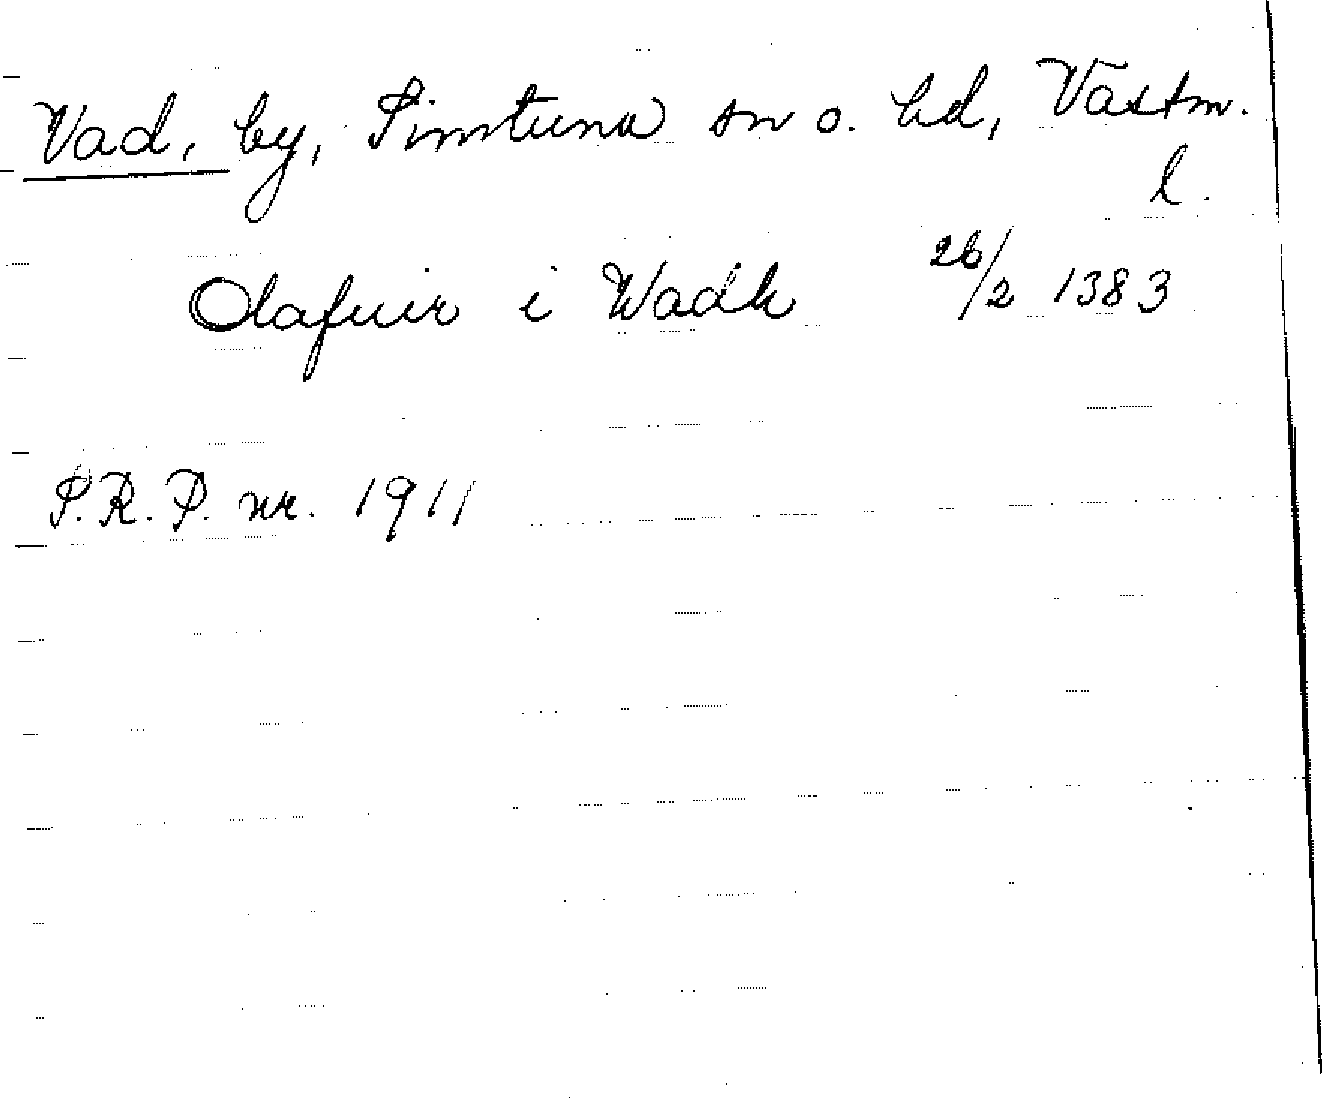 Vad, by, Simtuna sn o. hd, Västm.
l.
Olafuir i Wadh 26/2 1383
S.R.P. nr. 1911